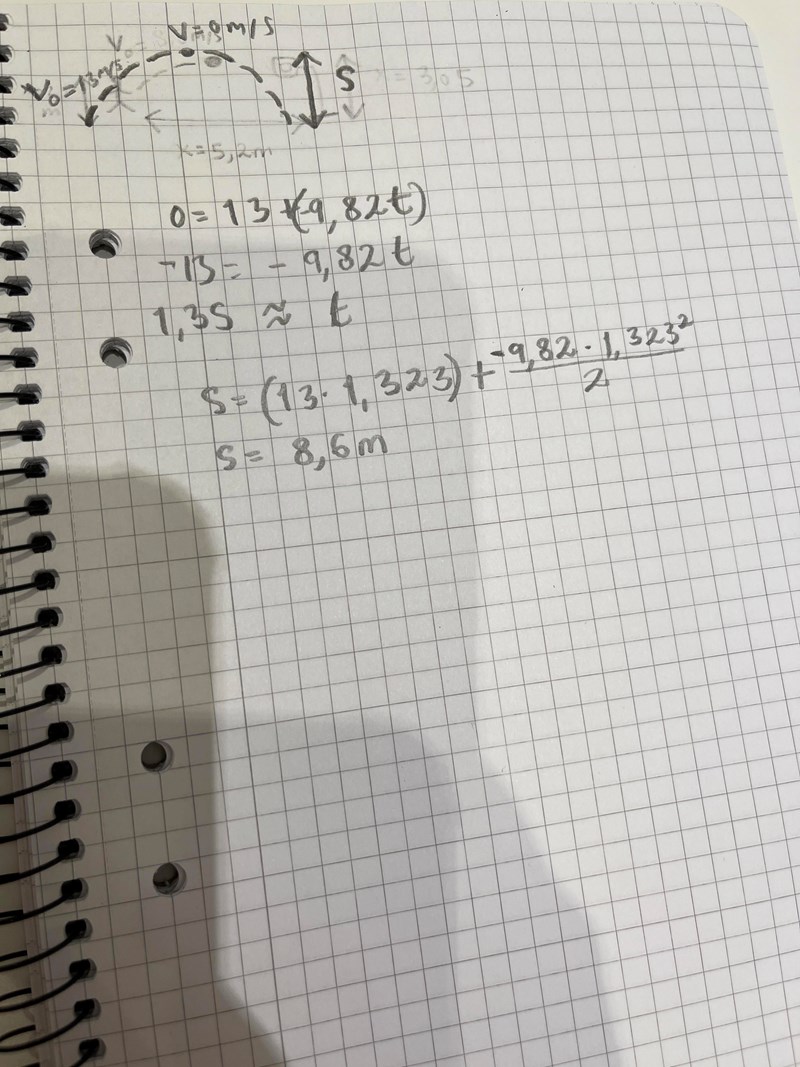 V=0m/s
V₀=13m/s
S
x=5,2m
0=13+(-9,82t)
-13=-9,82t
1,3S ≈ t
S=(13·1,323)+\frac{-9,82·1,323²}{2}
S= 8,6m